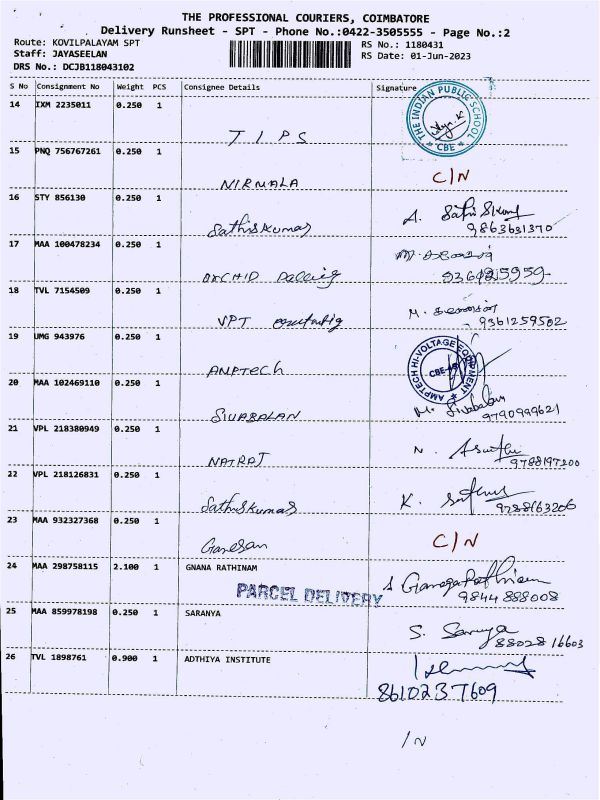 THE PROFESSIONAL COURIERS, COIMBATORE
Delivery Runsheet - SPT - Phone No.:0422-3505555 - Page No.:2
Route: KOVILPALAYAM SPT
Staff: JAYASEELAN
DRS No.: DCJB118043102
RS No.: 1180431
RS Date: 01-Jun-2023
S No Consignment No Weight PCS Consignee Details Signature
14 IXM 2235011 0.250 1
TIPS
THE INDIAN PUBLIC SCHOOL
CBE
15 PNQ 756767261 0.250 1
NIRMALA C/N
16 STY 856130 0.250 1
Sathiskumar A.
9863631370
17 MAA 100478234 0.250 1
ORCHID
18 TVL 7154509 0.250 1
VPT M.
9361259502
19 UMG 943976 0.250 1
AMPTECH
AMPTECH HI-VOLTAGE EQUIPMENT
CBE
20 MAA 102469110 0.250 1
SIVABALAN M. Sivabalan
9790999621
21 VPL 218380949 0.250 1
NATRAJ N.
9788197200
22 VPL 218126831 0.250 1
Sathiskumar K.
9788163206
23 MAA 932327368 0.250 1
Ganesan C/N
24 MAA 298758115 2.100 1 GNANA RATHINAM
PARCEL DELIVERY
9844888008
25 MAA 859978198 0.250 1 SARANYA
S. Saranya
8802816603
26 TVL 1898761 0.900 1 ADTHIYA INSTITUTE
8610237609
/N